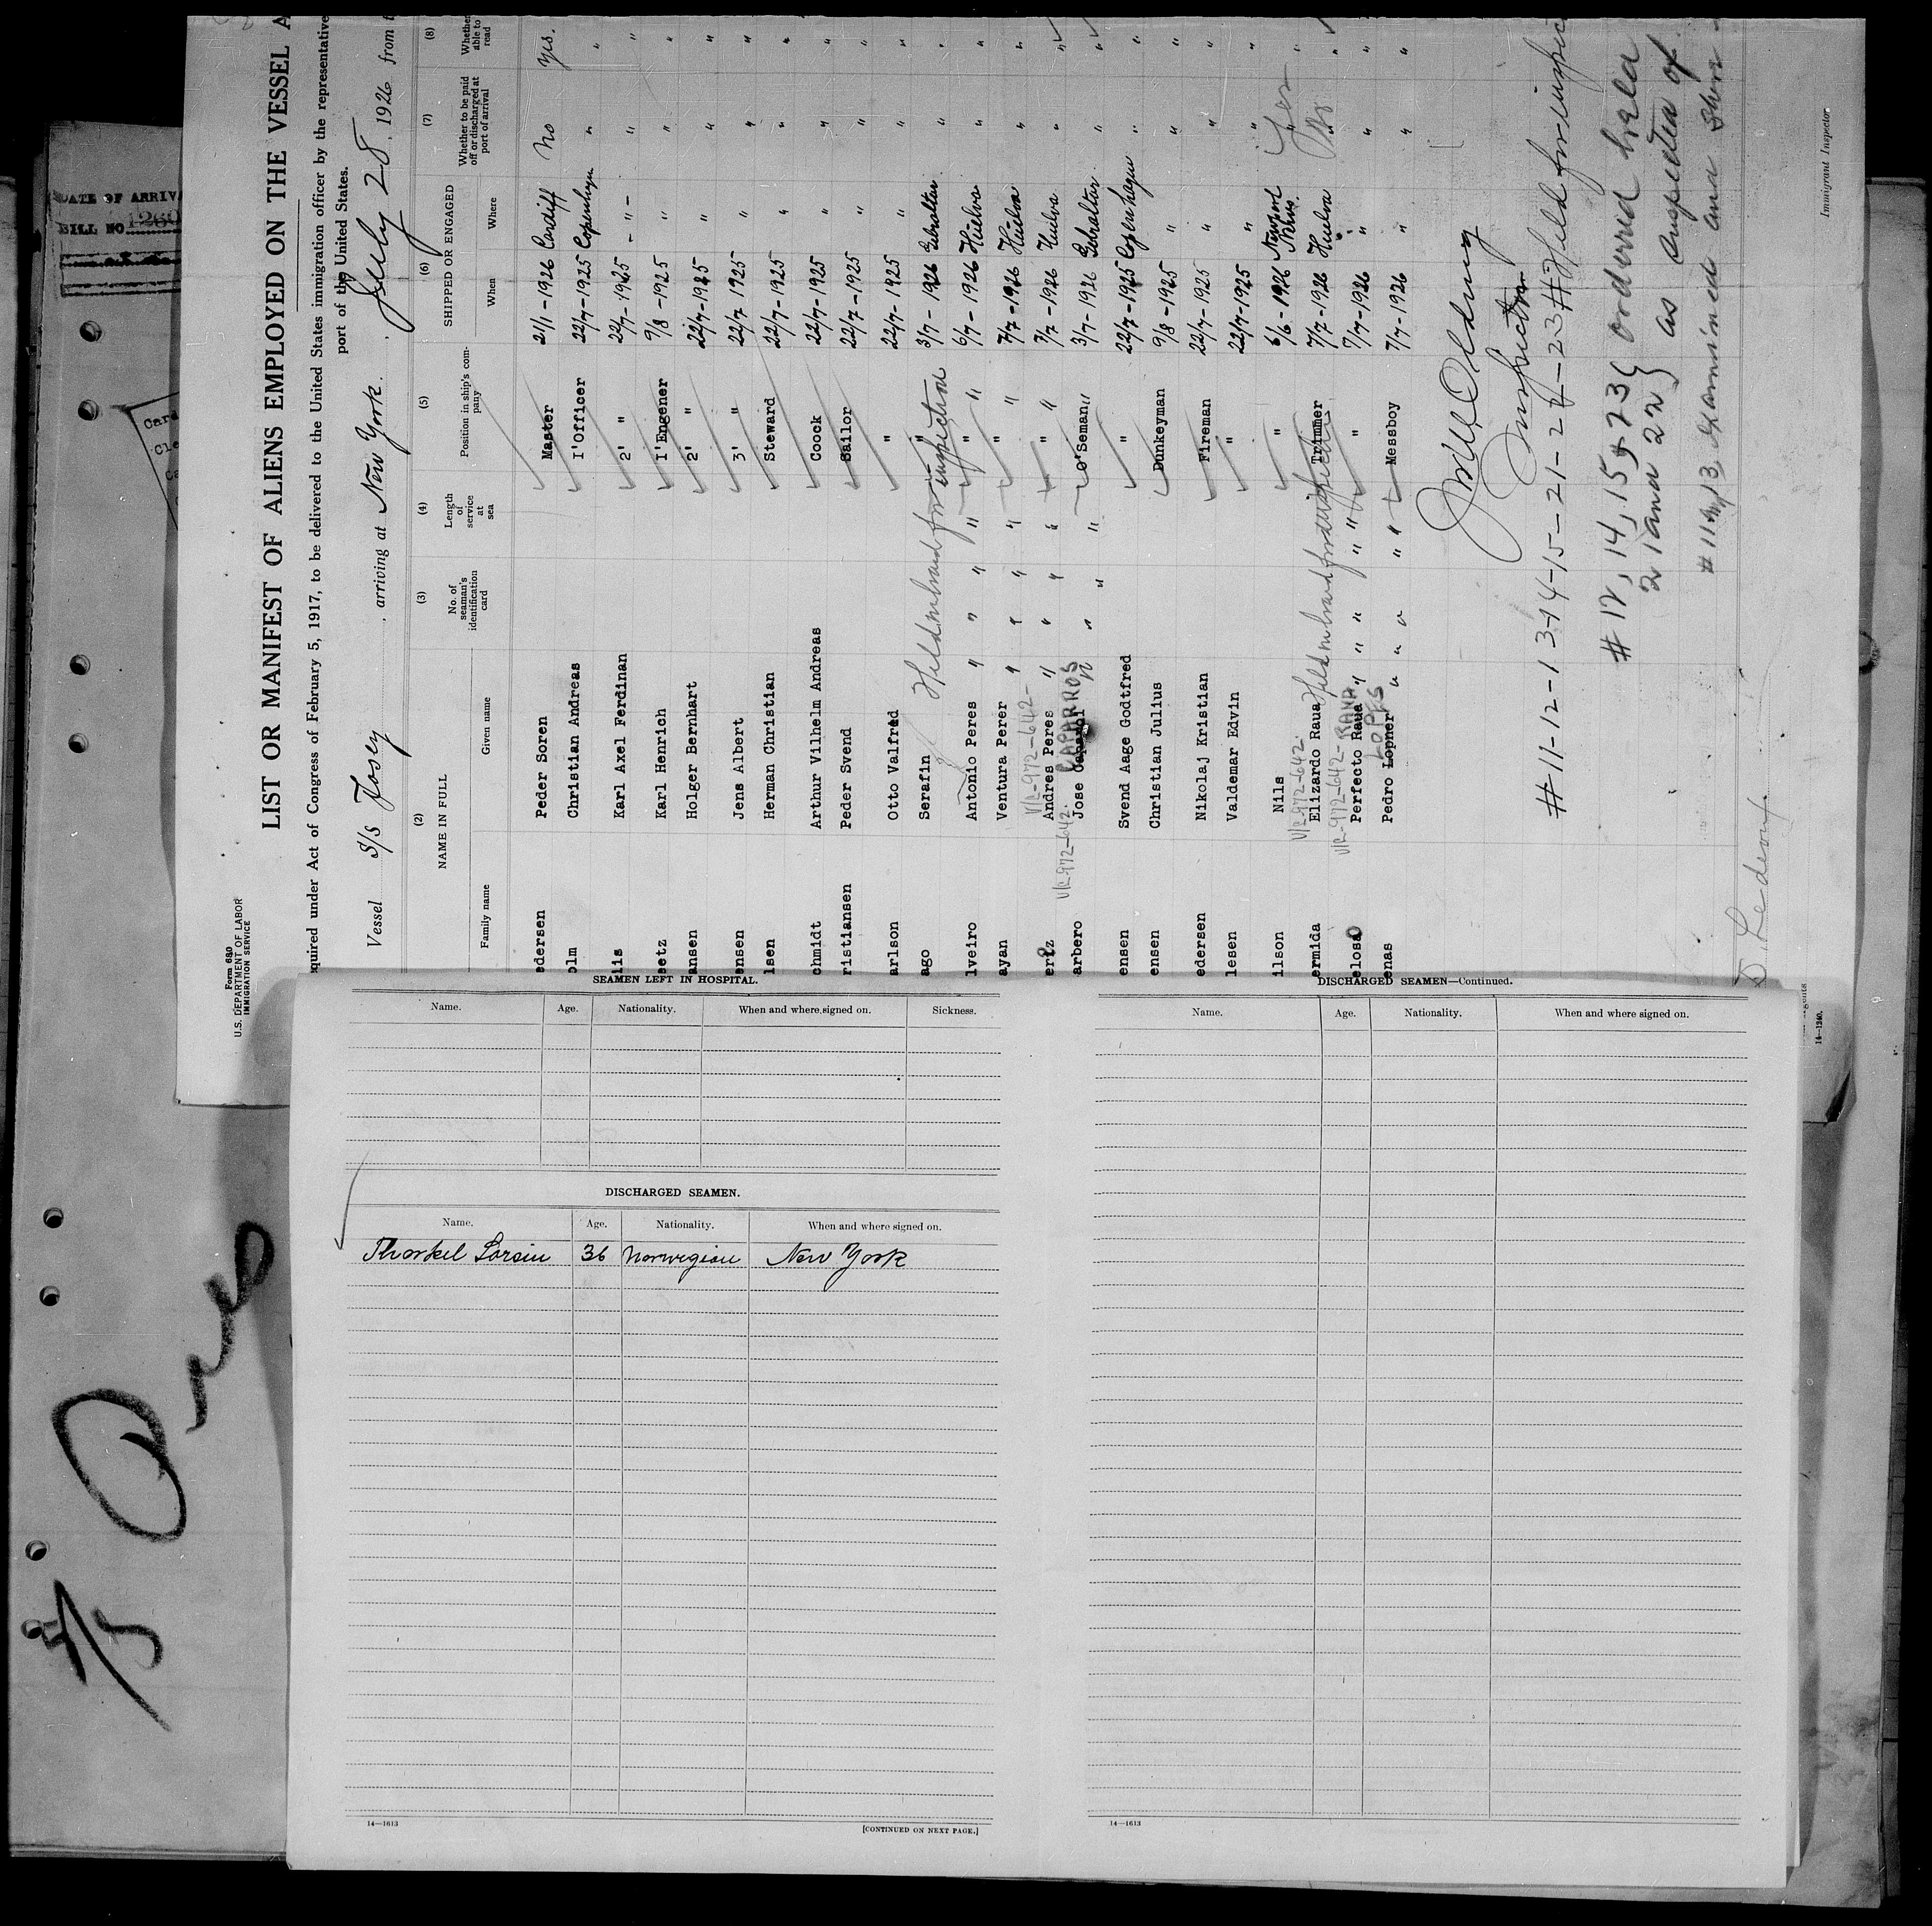 DATE OF ARRIVA
BILL NO 1260
Form 680
U.S. DEPARTMENT OF LABOR
IMMIGRATION SERVICE
LIST OR MANIFEST OF ALIENS EMPLOYED ON THE VESSEL A
equired under Act of Congress of February 5, 1917, to be delivered to the United States immigration officer by the representative
port of the United States.
Vessel S/S Josey, arriving at New York, July 28, 1926 from
(2) (3) (4) (5) (6) (7) (8)
NAME IN FULL No. of seaman's identification card Length of service at sea Position in ship's company SHIPPED OR ENGAGED Whether to be paid off or discharged at port of arrival Whether able to read
Family name Given name When Where
edersen Peder Soren Master 21/1-1926 Cardiff No yes.
olm Christian Andreas I'Officer 22/7-1925 Copenhagen " "
lis Karl Axel Ferdinan 2' " 22/7-1925 - " - " "
eetz Karl Henrich I'Engener 9/8-1925 " " "
ansen Holger Bernhart 2' " 22/7-1925 " " "
ensen Jens Albert 3' " 22/7 1925 " " "
lsen Herman Christian Steward 22/7-1925 " " "
chmidt Arthur Vilhelm Andreas Coock 22/7-1925 " " "
ristiansen Peder Svend Sailor 22/7-1925 " " "
arlson Otto Valfred " 22/7-1925 " " "
ago Serafin Held on board for inspection " 3/7-1926 Gibraltar " "
lveiro Antonio Peres " " " " " 6/7-1926 Huelva " "
ayan Ventura Perer " " " " " 7/7-1926 Huelva " "
V/L-972-642-
erez Andres Peres " " " " " 7/7-1926 Huelva " "
V/L-972-642. CAPARROS
arbero Jose " " " O'Seman " 3/7-1926 Gibraltar " "
ensen Svend Aage Godtfred " 22/7-1925 Copenhagen " "
ensen Christian Julius Dunkeyman 9/8-1925 " " "
edersen Nikolaj Kristian Fireman 22/7-1925 " " "
lesen Valdemar Edvin " 22/7-1925 " " "
ilson Nils " 6/6-1926 Newport News Yes "
V/L-972-642.
ermida Elizardo Raua Held on board for inspection Trimmer 7/7-1926 Huelva "
V/L-972-642- RAMA
eloso Perfecto Raua " " " " " 7/7-1926 " " "
LOPES
enas Pedro Lopner " " " " Messboy 7/7-1926 " " "
Inspector
#11-12-13-14-15-21-22-23# Held for inspec
#12, 14, 15 & 23 ordered held
21 and 22 as suspected of
#11 & 13, Examined and
Immigrant Inspector
14—1240.
SEAMEN LEFT IN HOSPITAL.
Name. Age. Nationality. When and where signed on. Sickness.
DISCHARGED SEAMEN.
Name. Age. Nationality. When and where signed on.
Thorkel Larsin 36 Norwegian New York
14—1613 [CONTINUED ON NEXT PAGE.]
DISCHARGED SEAMEN—Continued.
Name. Age. Nationality. When and where signed on.
14—1613